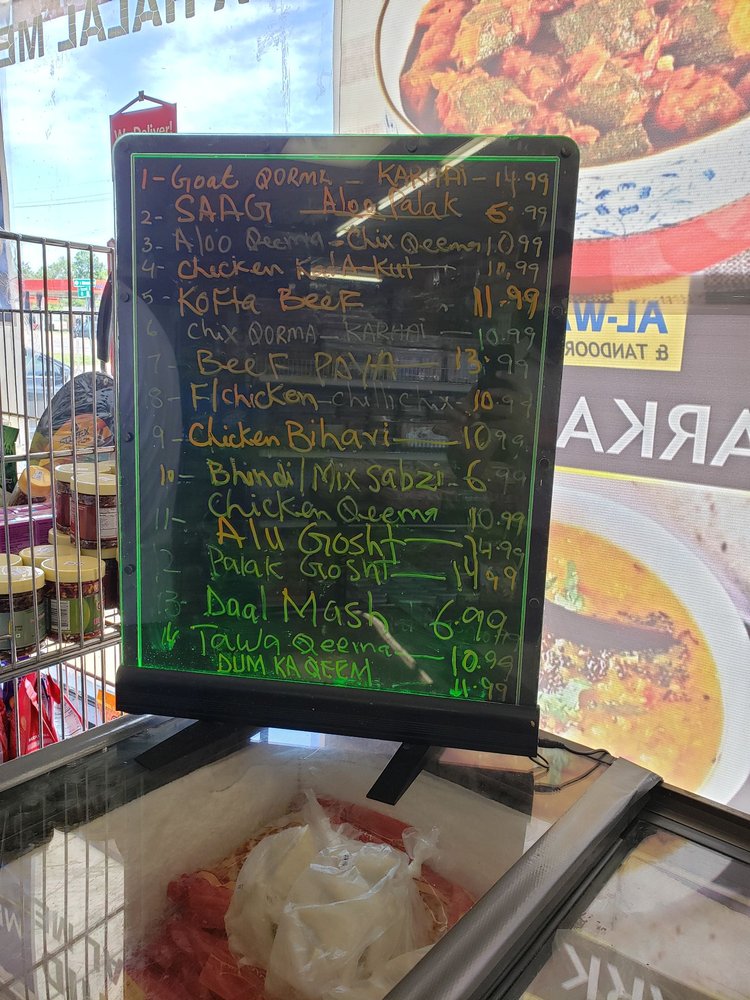 A HALAL ME
We Deliver!
1- Goat QORMA - KARHAI - 14.99
2- SAAG - Aloo Palak 6.99
3- Aloo Qeema - Chix Qeema 10.99
4- chicken Kad-A-Kut - 10.99
5- KOFta BEEF - 11.99
6 Chix QORMA - KARHAI - 10.99
7- BEEF PAYA - 13.99
8- F/chicken - chilli chix - 10.99
9- Chicken Bihari - 10.99
10- Bhindi/Mix Sabzi - 6.99
11- Chicken Qeema 10.99
Alu Gosht - 14.99
12 Palak Gosht - 14.99
13- Daal Mash 6.99
14 Tawa Qeema - 10.99
DUM KA QEEM - 11.99
AL-WA
& TANDOOR
ARKA